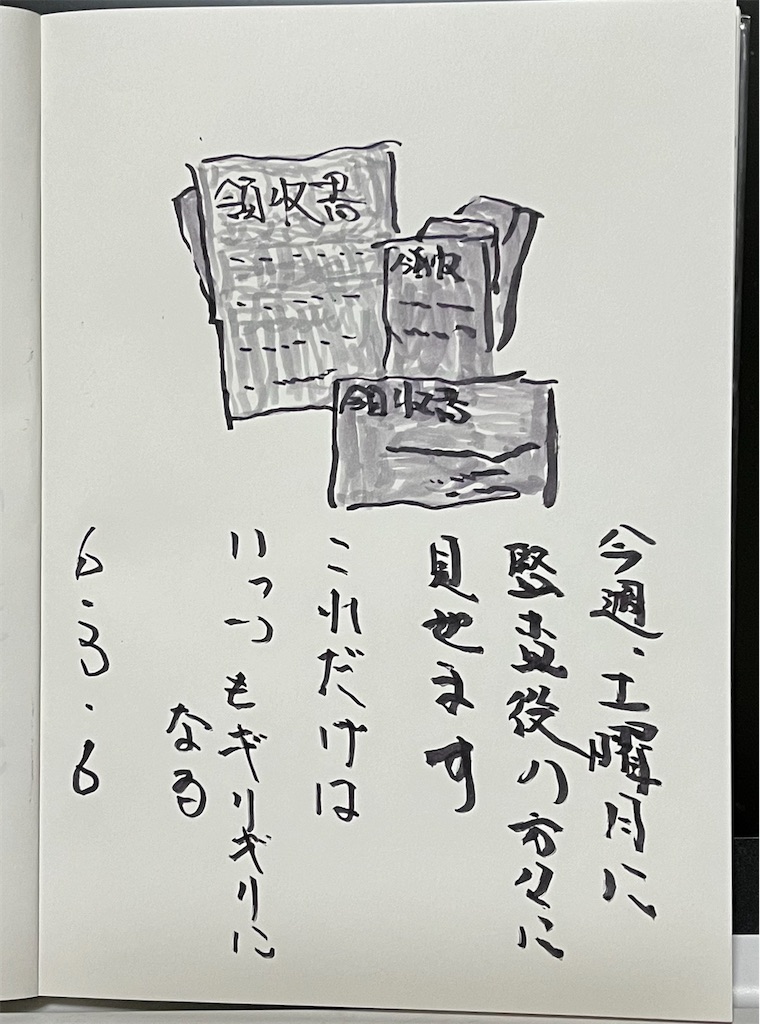 領収書
領収
領収書
今週・土曜日に
監査役の方々に
見せます
これだけは
いっつもギリギリに
なる
6.3.6